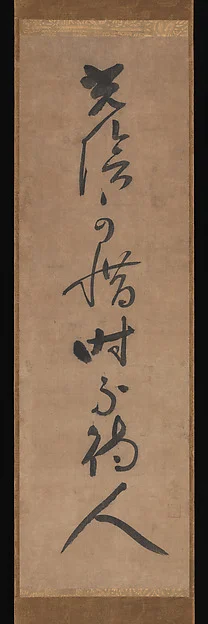 光陰可惜時不待人